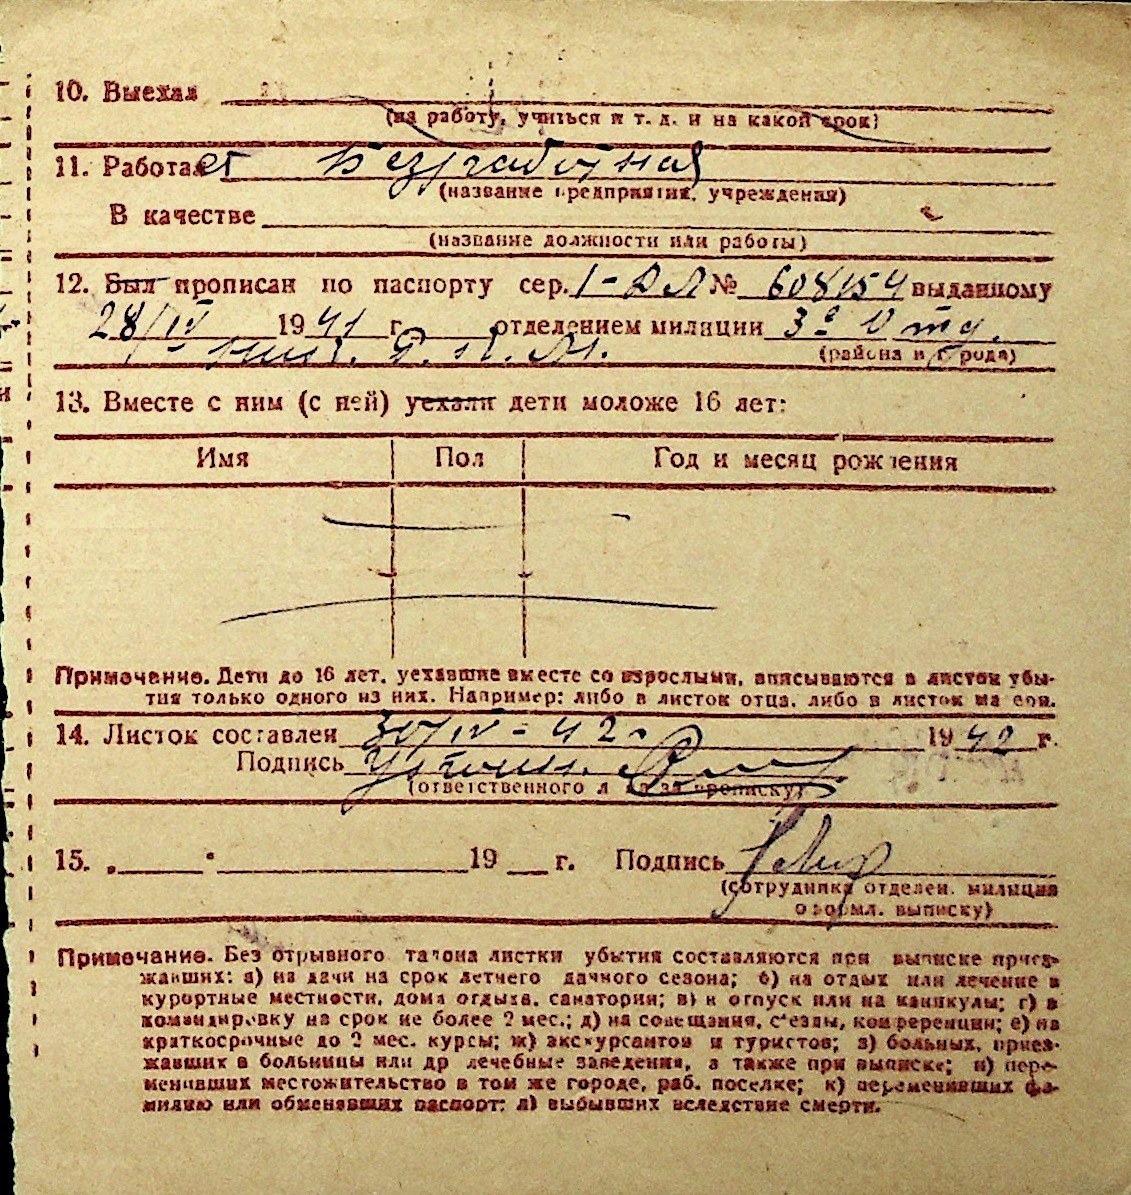 10. Выехал
(на работу, учиться и т. д. и на какой срок)
11. Работает Безработная
(название предприятия, учреждения)
В качестве
(название должности или работы)
12. Был прописан по паспорту сер. 1-ВЛ № 608154 выданному
28/IV 1941 г. отделением милиции 3е Отд.
Р. К. М. (района и города)
13. Вместе с ним (с ней) уехали дети моложе 16 лет:
Имя Пол Год и месяц рождения
Примечание. Дети до 16 лет, уехавшие вместе со взрослыми, вписываются в листок убы-
тия только одного из них. Например: либо в листок отца, либо в листок матери.
14. Листок составлен 30/IV-42 1942 г.
Подпись
(ответственного лица за прописку)
15. „ " 19 г. Подпись
(сотрудника отделен. милиции
оформл. выписку)
Примечание. Без отрывного талона листки убытия составляются при выписке приез-
жавших: а) на дачи на срок летнего дачного сезона; б) на отдых или лечение в
курортные местности, дома отдыха, санатории; в) в отпуск или на каникулы; г) в
командировку на срок не более 2 мес.; д) на совещания, с'езды, конференции; е) на
краткосрочные до 2 мес. курсы; ж) экскурсантов и туристов; з) больных, приез-
жавших в больницы или др лечебные заведения, а также при выписке; и) пере-
менивших местожительство в том же городе, раб. поселке; к) переменивших фа-
милию или обменявших паспорт; л) выбывших вследствие смерти.